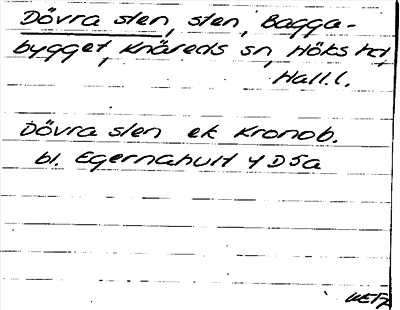 Dövra sten, sten, Bagga-
bygget, Knäreds sn, Höks hd,
Hall.l.
Dövra sten ek Kronob.
bl. Egernahult 4D5a